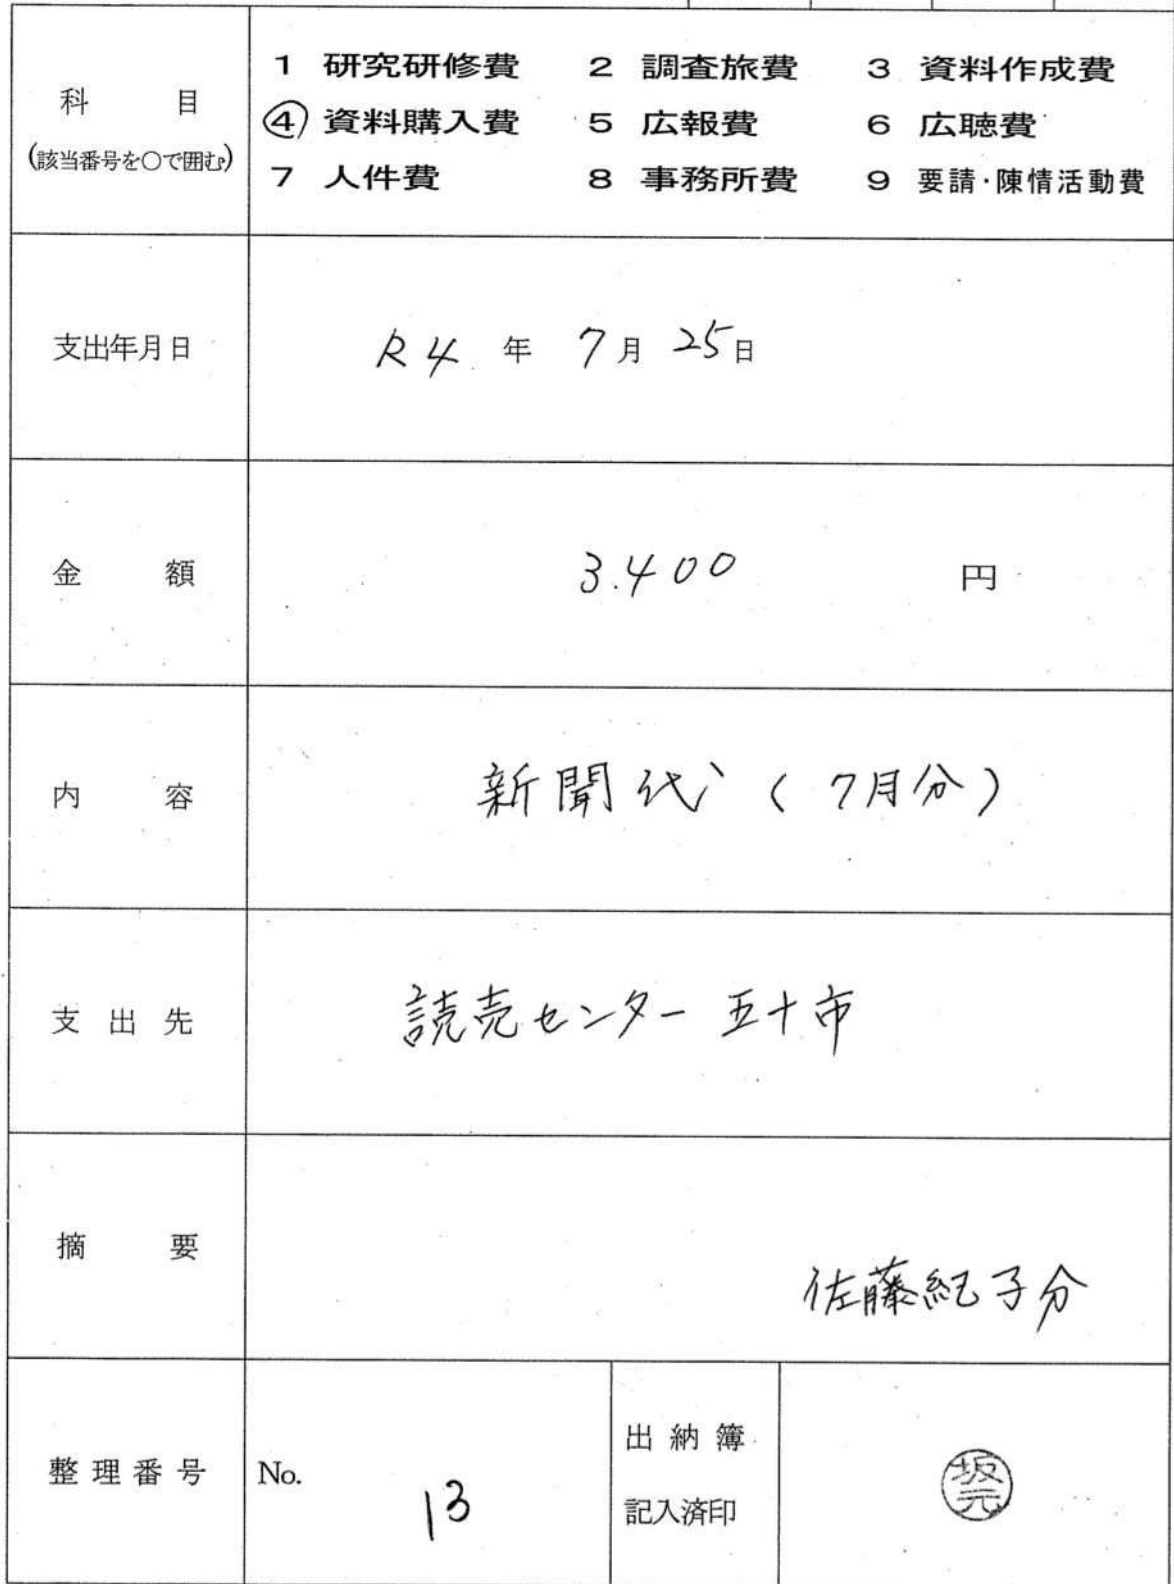 科目
(該当番号を○で囲む)
1 研究研修費 2 調査旅費 3 資料作成費
④ 資料購入費 5 広報費 6 広聴費
7 人件費 8 事務所費 9 要請・陳情活動費
支出年月日 R4 年 7月 25日
金額 3.400 円
内容 新聞代(7月分)
支出先 読売センター 五十市
摘要 佐藤紀子分
整理番号 No. 13
出納簿
記入済印
坂元